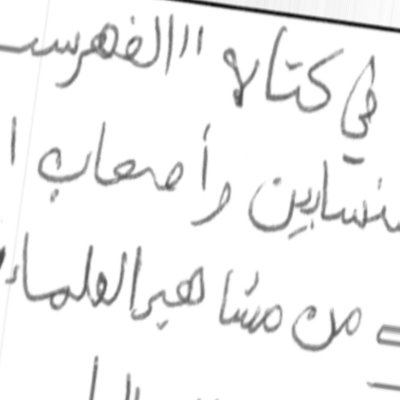 في كتابه "الفهرست
النسابين وأصحاب ا
من مشاهير العلماء